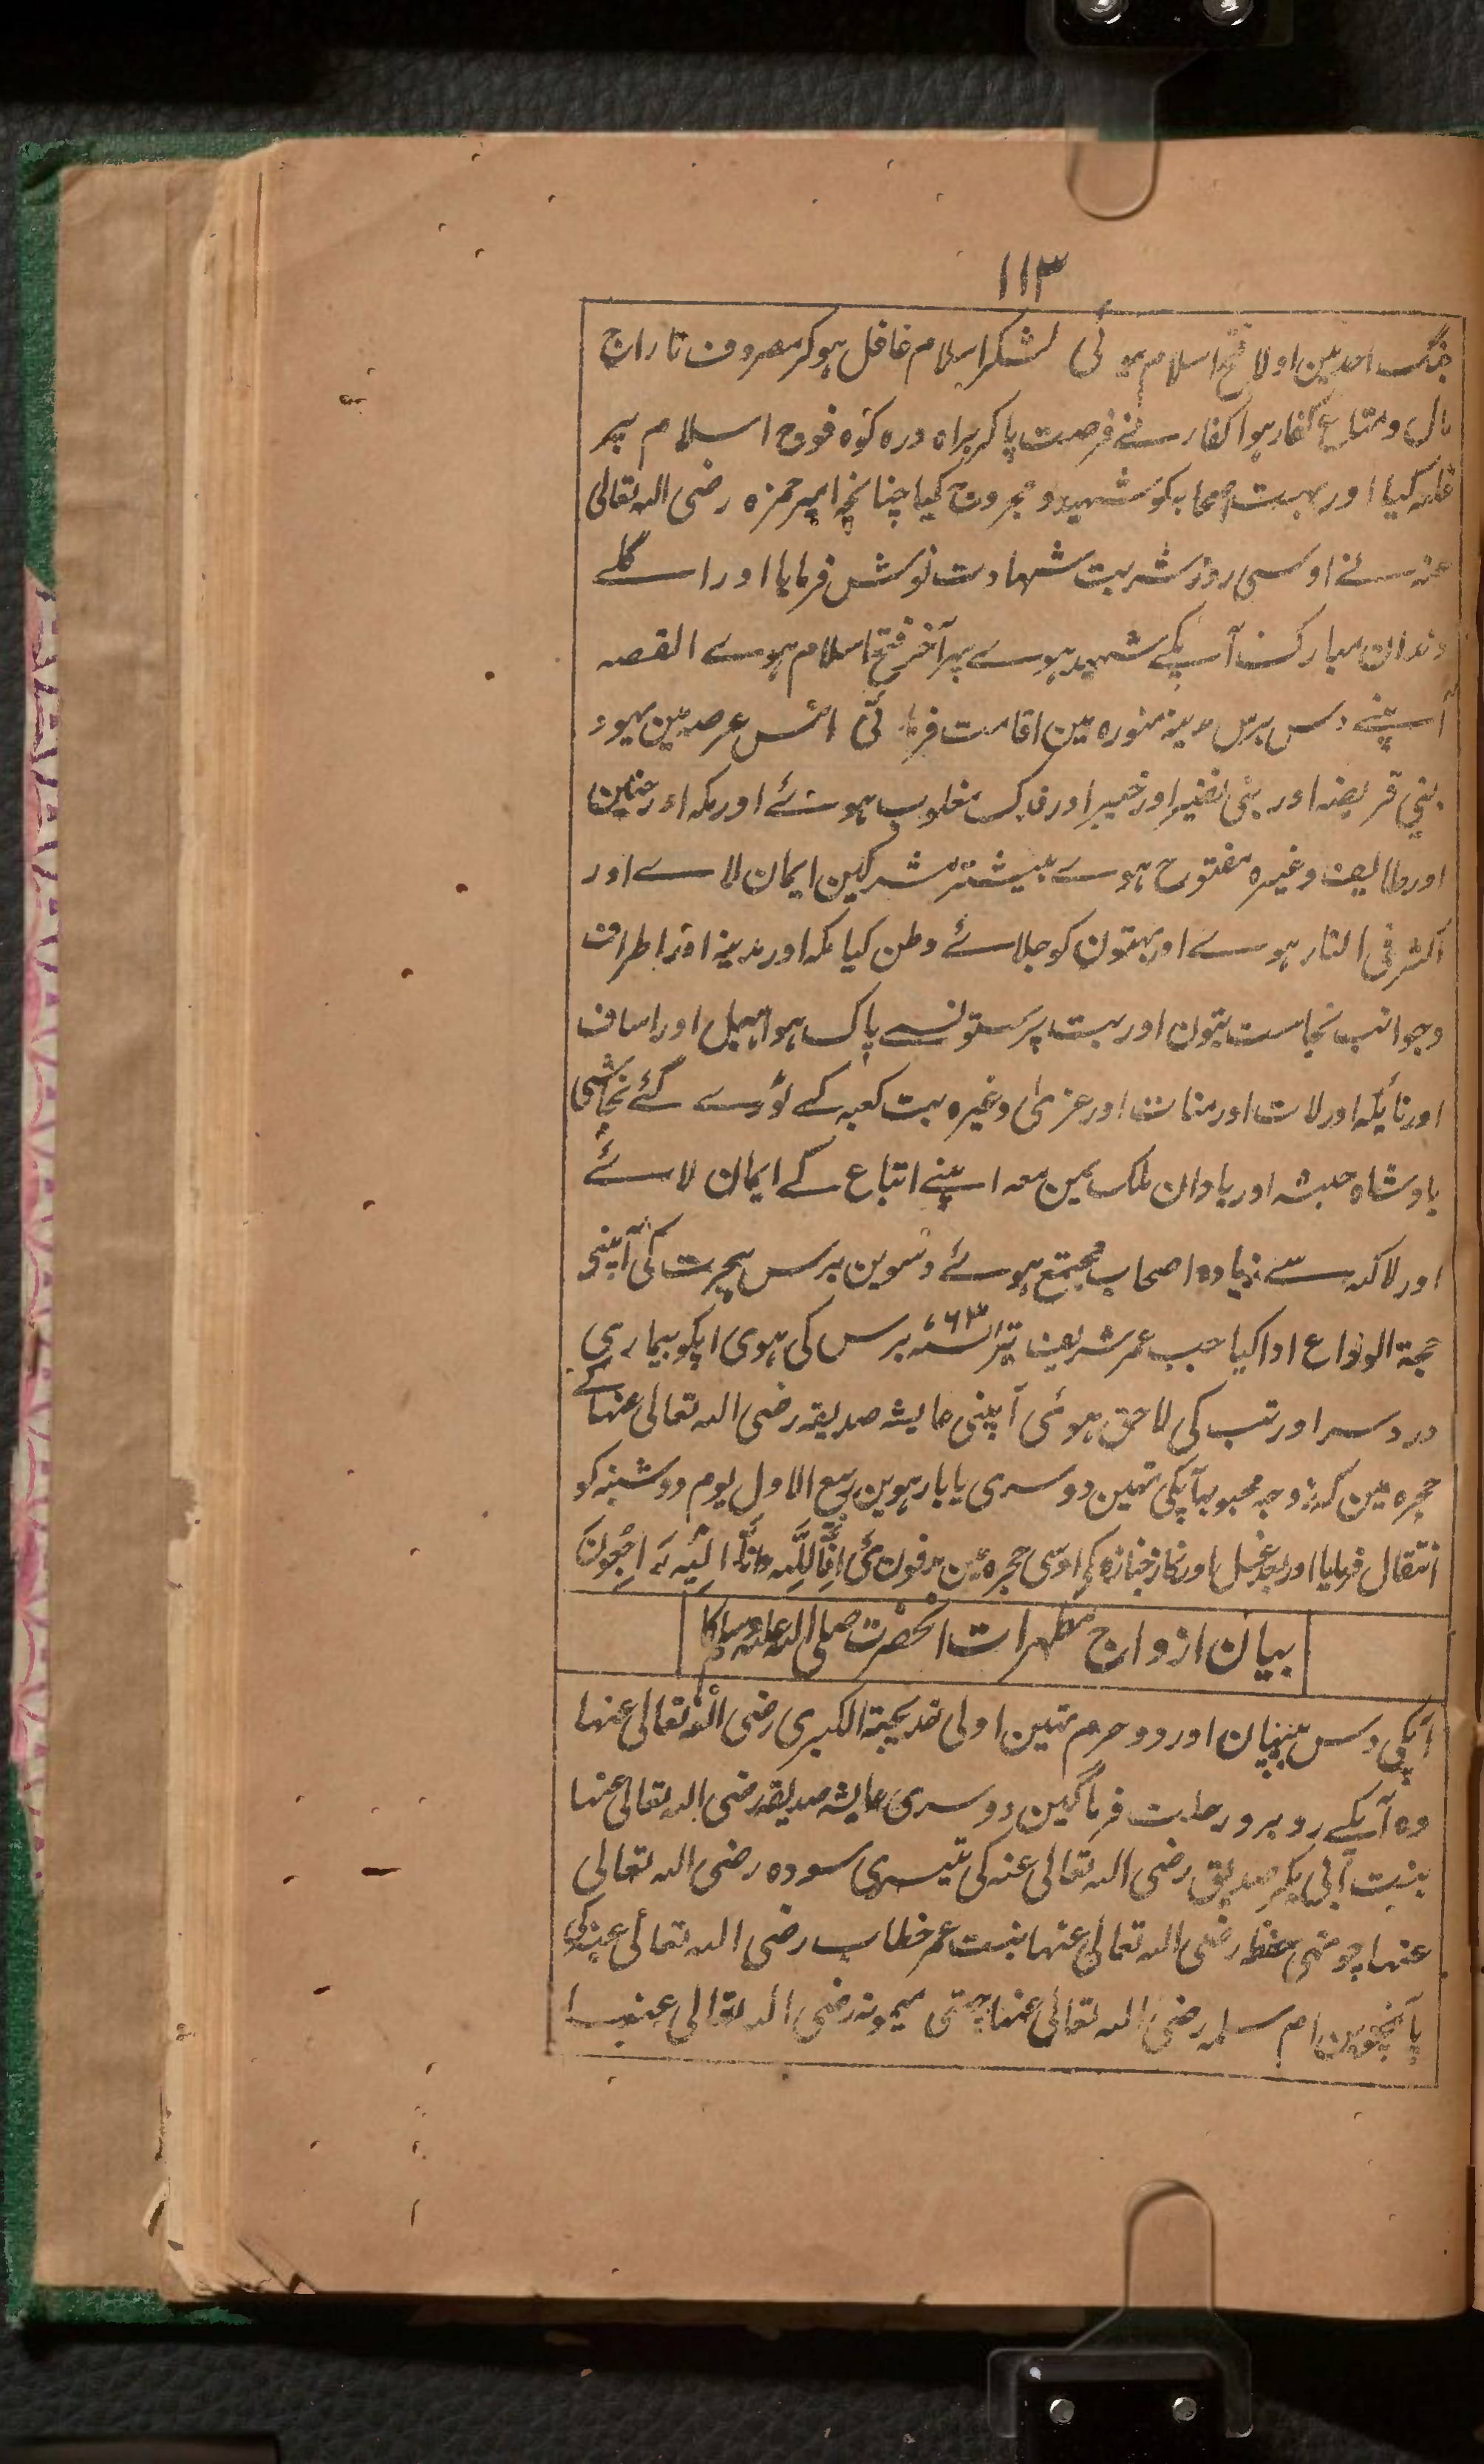 ۱۱۳
جنگ احد مین اولا فتح اسلام ہوئی لشکر اسلام غافل ہوکر مصروف تاراج
مال و متاع کفار ہوا کفار نے فرصت پاکر براہ درہ کوہ فوج اسلام پر
غلبہ کیا اور بہت صحابہ کو شہید و مجروح کیا چنانچہ امیر حمزہ رضی اللہ تعالی
عنہ نے اوسی روز شربت شہادت نوش فرمایا اور اگلے
دندان مبارک آپکے شہید ہوے پہر آخر فتح اسلام ہوے القصہ
آپنے دس برس مدینہ منورہ مین اقامت فرمائی اس عرصہ مین یہود
بنی قریضہ اور بنی نضیر اور خیبر اور فدک مغلوب ہوئے اور مکہ اور حنین
اور طایف وغیرہ مفتوح ہوے بیشتر مشرکین ایمان لاے اور
اکثر فی النار ہوے اور بہتون کو جلائے وطن کیا مکہ اور مدینہ اور اطراف
و جوانب نجاست بتون اور بت پرستونسے پاک ہوا ہبل اور اساف
اور نایلہ اور لات اور منات اور عزی وغیرہ بت کعبہ کے توڑے گئے نجاشی
بادشاہ حبشہ اور بادان ملک یمن معہ اپنے اتباع کے ایمان لائے
اور لاکہ سے زیادہ اصحاب مجتمع ہوئے دسوین برس ہجرت کی آپنے
حجۃ الوداع ادا کیا جب عمر شریف تریسٹھ ۶۳ برس کی ہوی اپکو بیماری
درد سر اور تب کی لاحق ہوئی آپنی عایشہ صدیقہ رضی اللہ تعالی عنہا کے
حجرہ مین کہ زوجہ محبوبہ آپکی تہین دوسری یا بارہوین ربیع الاول یوم دوشنبہ کو
انتقال فرمایا اور بعد غسل اور نماز جنازہ کے اوسی حجرہ مین مدفون ہی اِنَّا لِلّٰہِ وَاِنَّا اِلَیْہِ رَاجِعُونَ
بیان ازواج مطہرات انحضرت صلی اللہ علیہ وسلم کا
آپکی دس بیبیان اور دو حرم تہین اولی خدیجۃ الکبری رضی اللہ تعالی عنہا
وہ آپکے روبرو رحلت فرماگئین دوسری عایشہ صدیقہ رضی اللہ تعالی عنہا
بنت ابی بکر صدیق رضی اللہ تعالی عنہ کی تیسری سودہ رضی اللہ تعالی
عنہا چوتہی حفظہ رضی اللہ تعالی عنہا بنت عمر خطاب رضی اللہ تعالی عنہ کی
پانچوین ام سلمہ رضی اللہ تعالی عنہا چھٹی میمونہ رضی اللہ تعالی عنہا